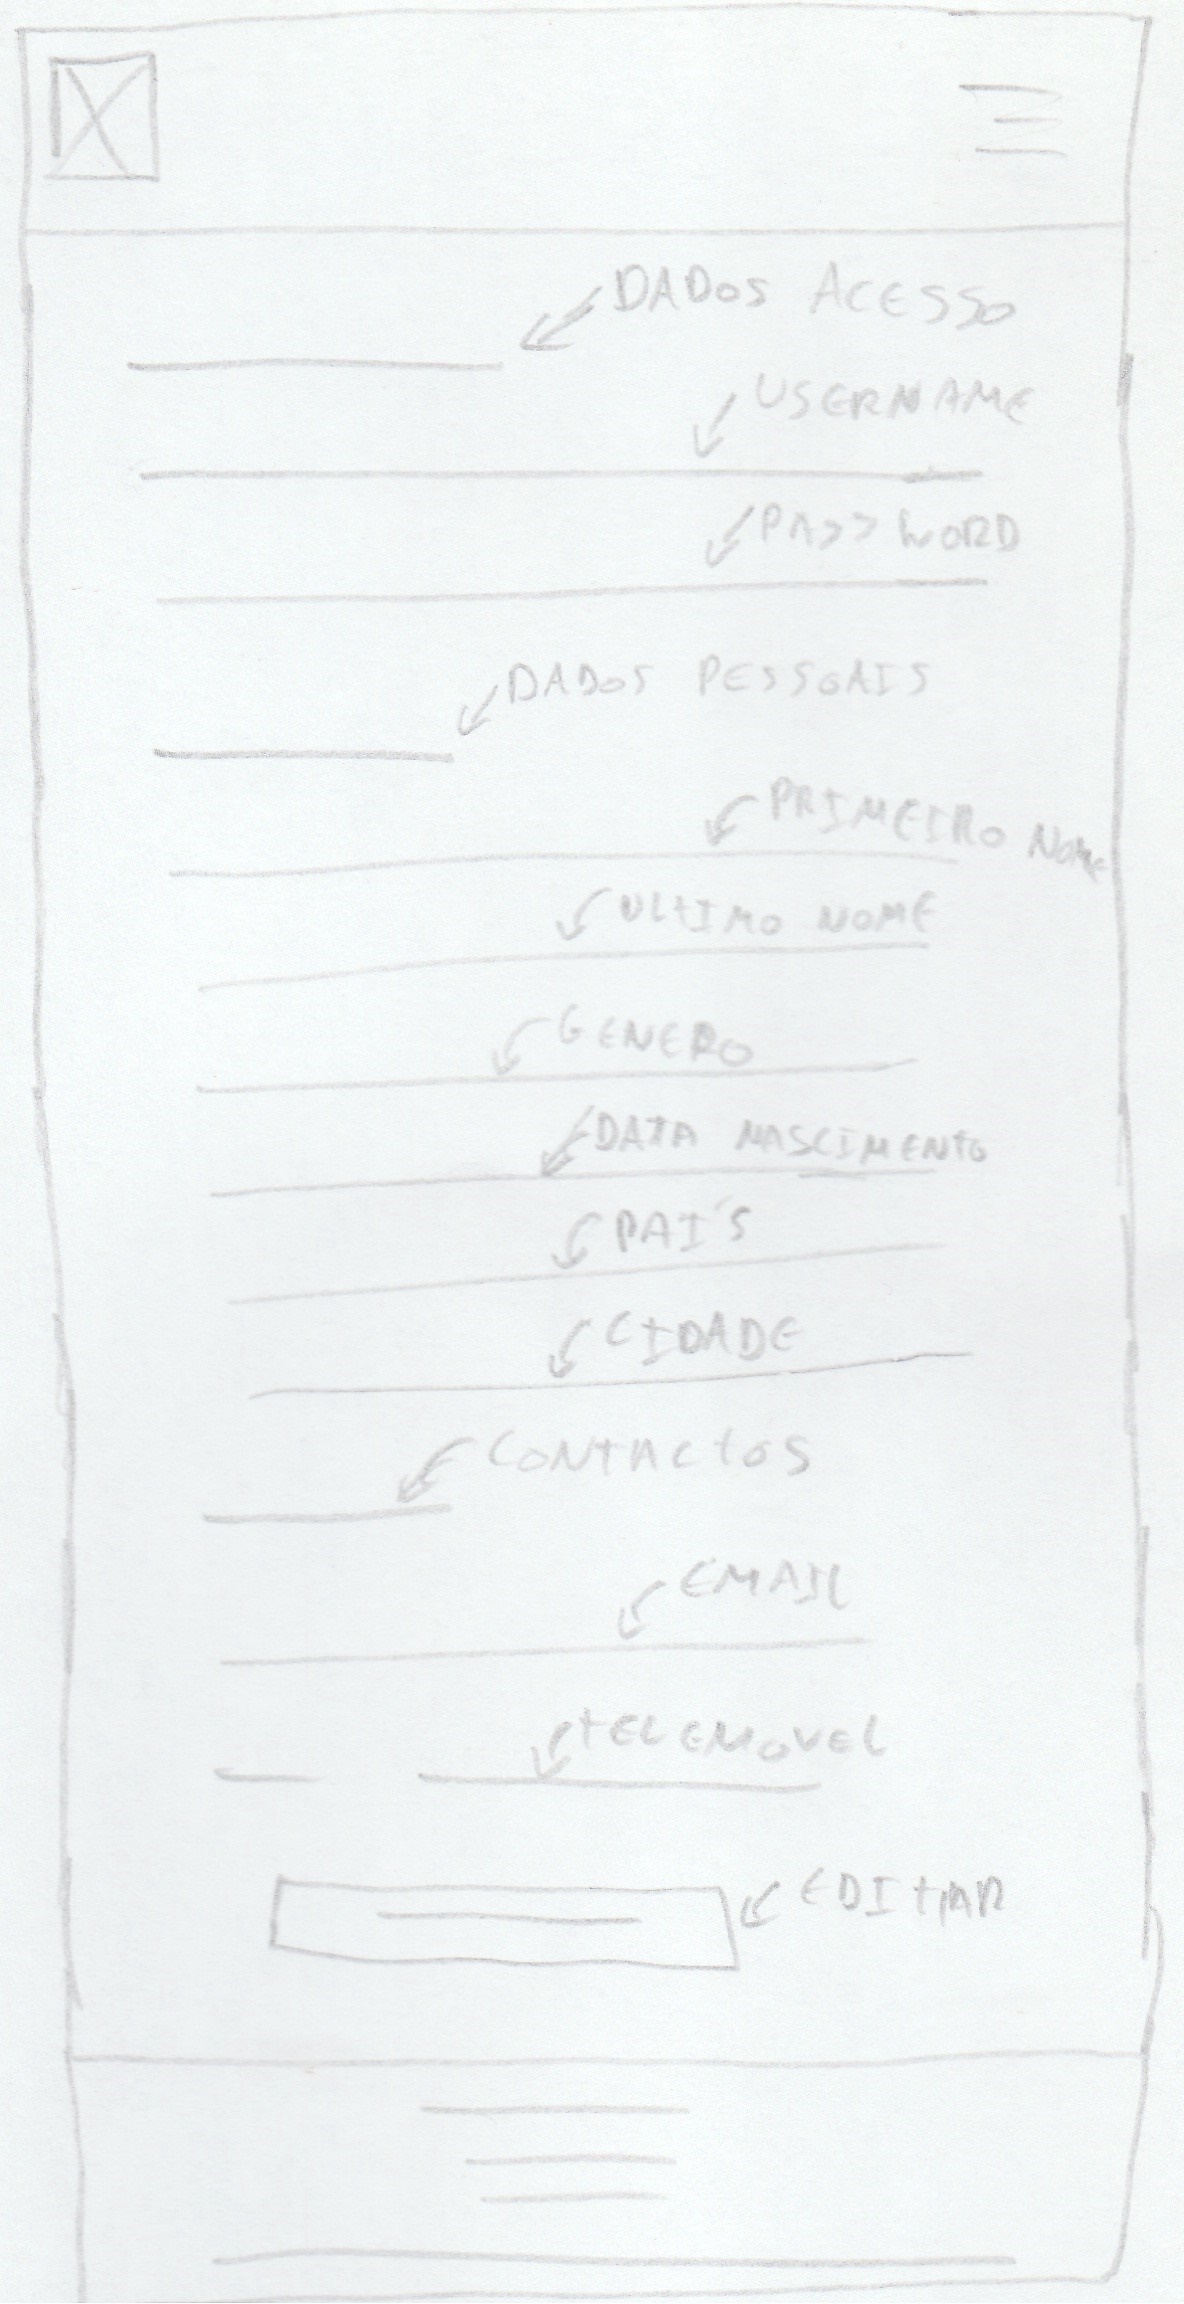 DADOS ACESSO
USERNAME
PASSWORD
DADOS PESSOAIS
PRIMEIRO NOME
ULTIMO NOME
GENERO
DATA NASCIMENTO
PAÍS
CIDADE
CONTACTOS
EMAIL
TELEMOVEL
EDITAR